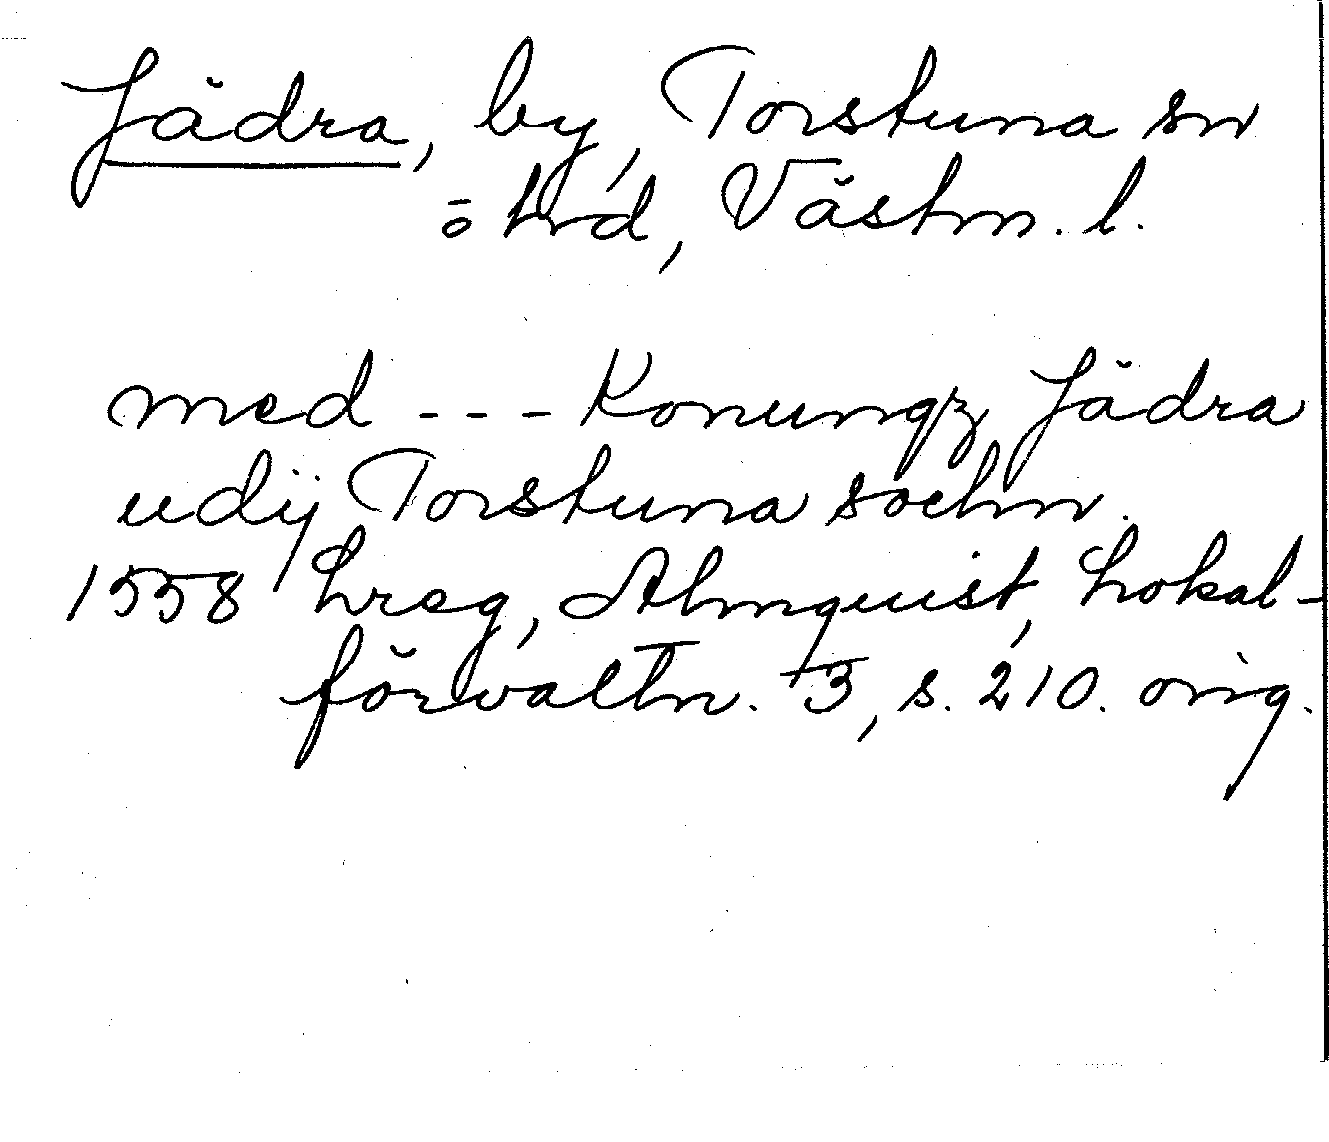 Jädra, by, Torstuna sn
o hrd, Västm. l.
med --- Konungz Jädra
udij Torstuna sochn.
1558 hreg, Almquist, Lokal-
förvaltn. 3, s. 210. orig.